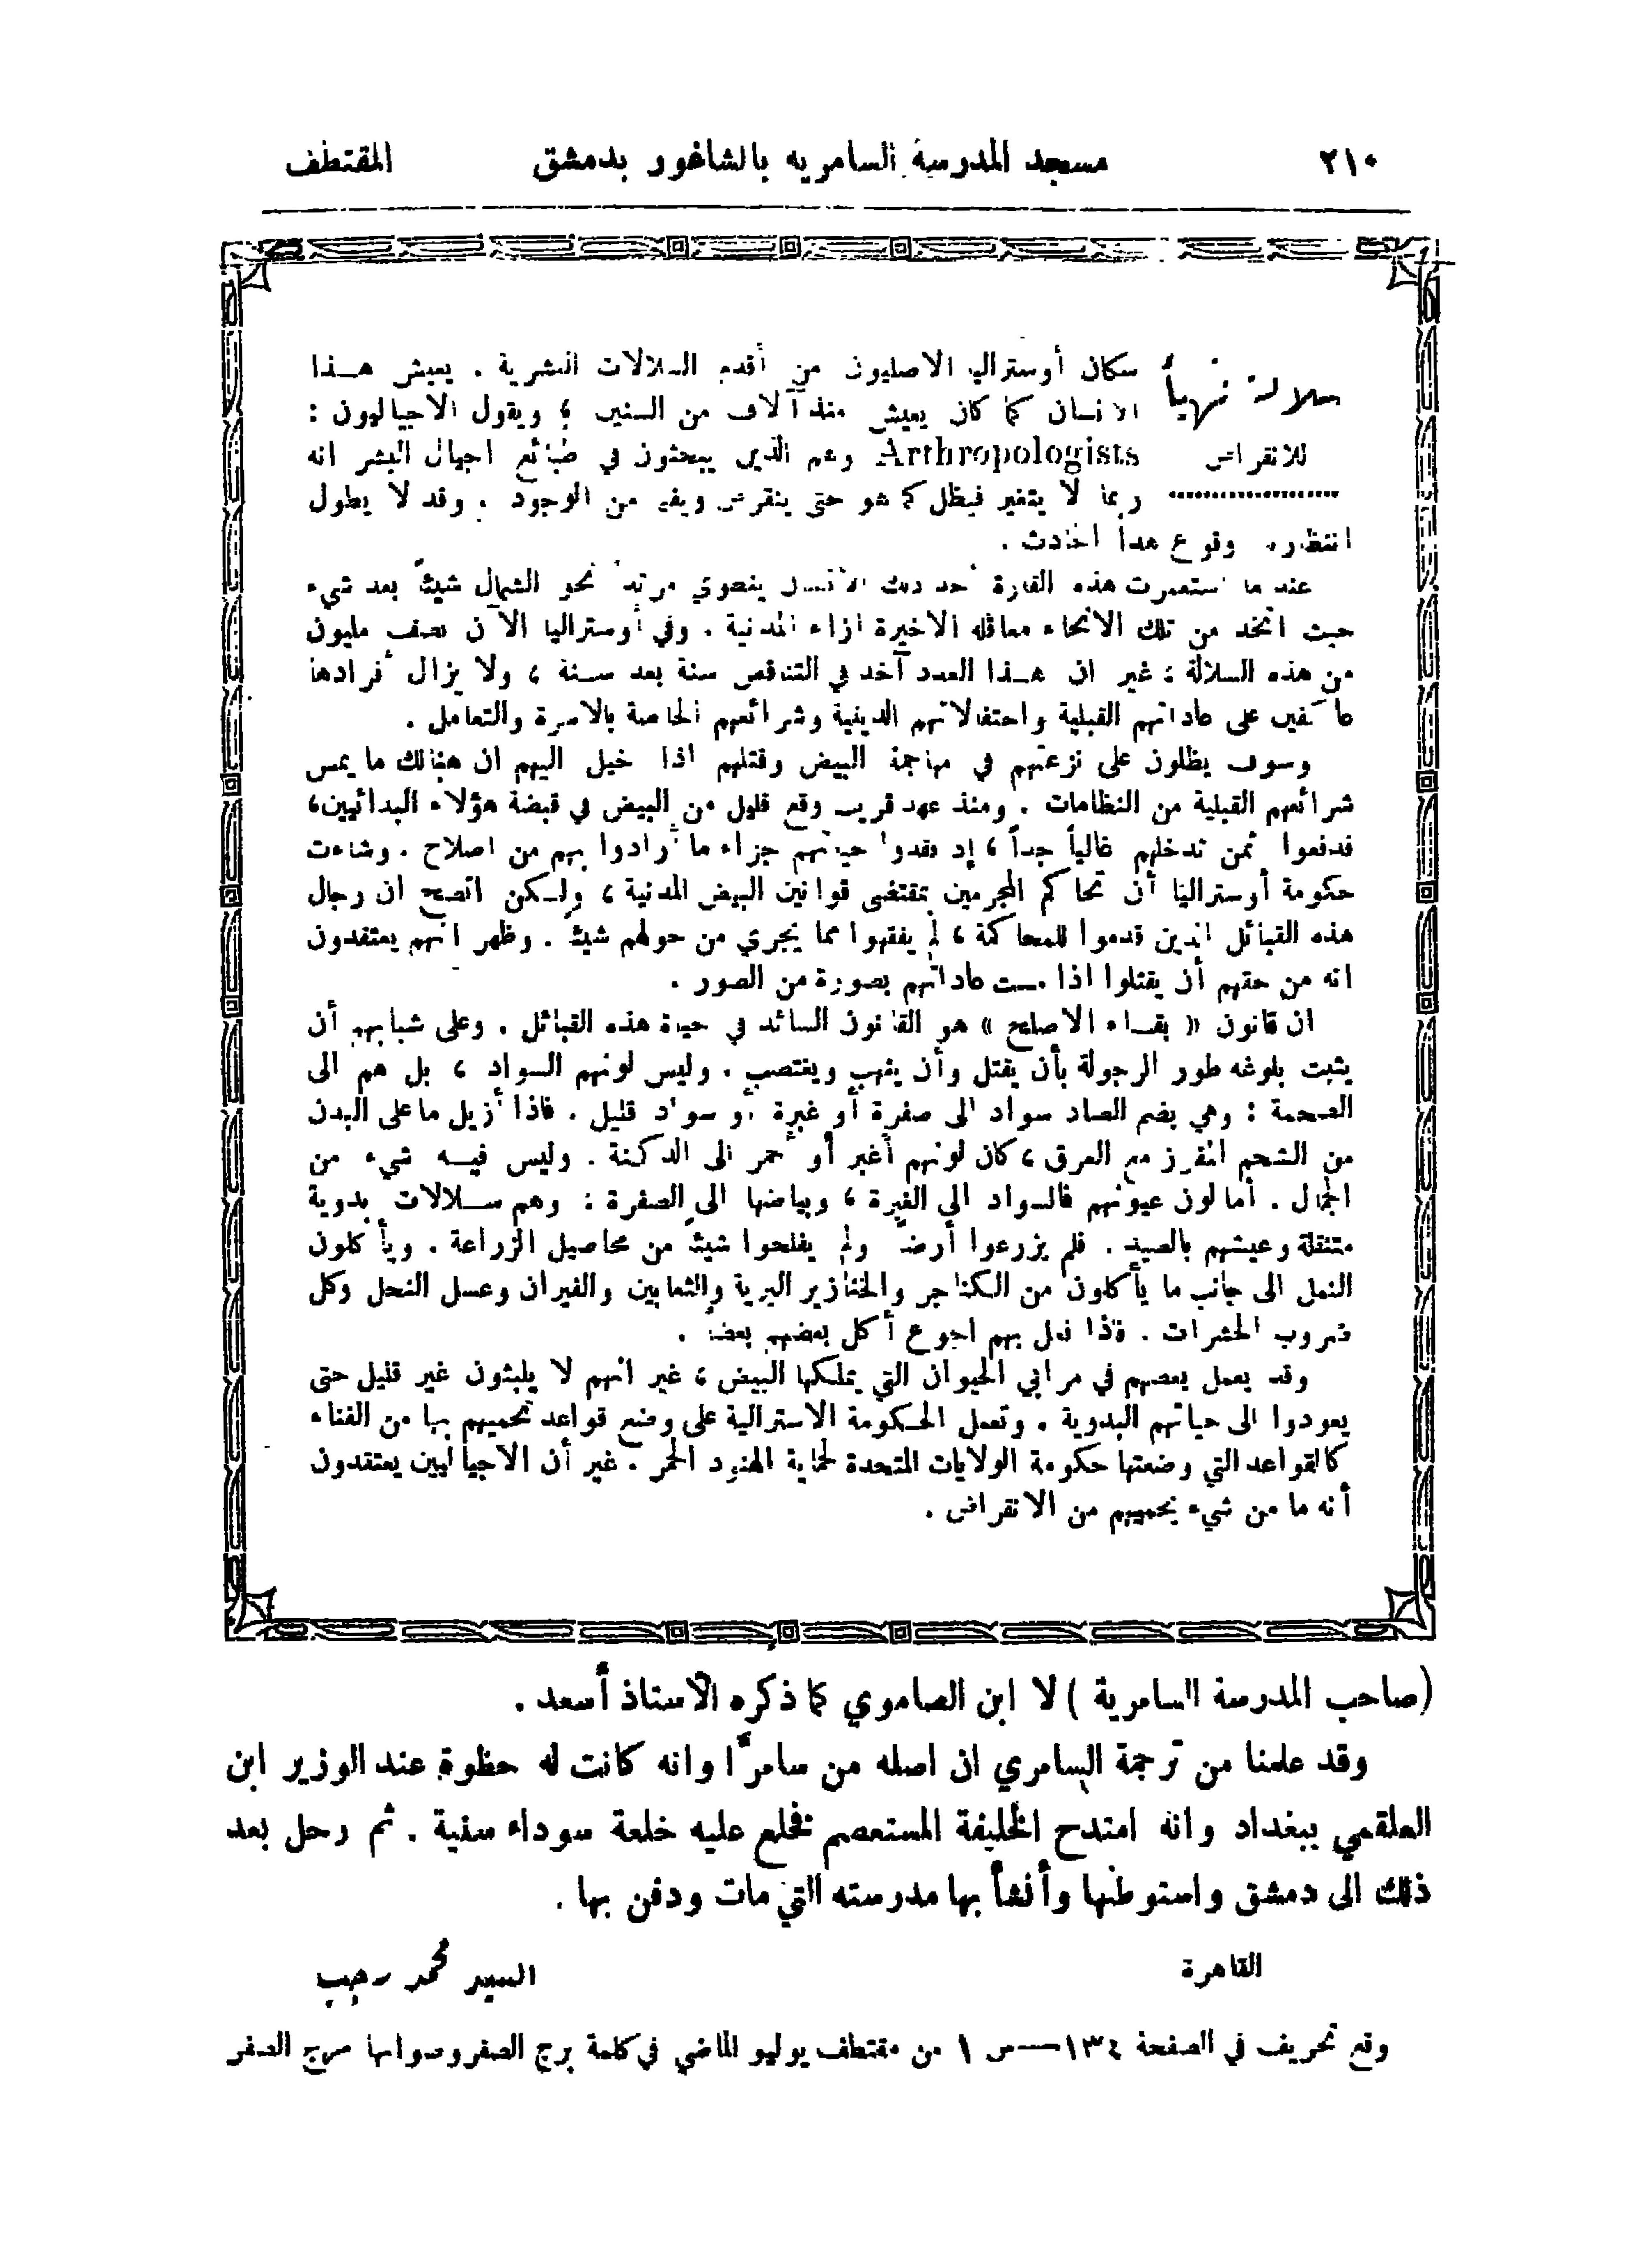 ٢١٠ مسجد المدرسة السامريه بالشاغور بدمشق المقتطف
سلالة تتهيأ
للانقراض
سكان أوستراليا الاصليون من أقدم السلالات البشرية . يعيش هـذا
الانسان كما كان يعيش منذ آلاف من السنين ، ويقول الاجياليون :
Arthropologists وهم الذين يبحثون في طبائع اجيال البشر انه
ربما لا يتغير فيظل كما هو حتى ينقرض ويفنى من الوجود . وقد لا يطول
انتظار وقوع هذا الحادث .
عند ما استعمرت هذه القارة أخذ ذلك الانسان ينضوي مرتداً نحو الشمال شيئاً بعد شيء
حيث اتخذ من تلك الانحاء معاقله الاخيرة ازاء المدنية . وفي أوستراليا الآن نصف مليون
من هذه السلالة ؛ غير ان هـذا العدد آخذ في التناقص سنة بعد سـنة ، ولا يزال أفرادها
عاكفين على عاداتهم القبلية واحتفالاتهم الدينية وشرائعهم الخاصة بالاسرة والتعامل .
وسوف يظلون على نزعتهم في مهاجمة البيض وقتلهم اذا خيل اليهم ان هنالك ما يمس
شرائعهم القبلية من النظامات . ومنذ عهد قريب وقع قليل من البيض في قبضة هؤلاء البدائيين،
فدفعوا ثمن تدخلهم غالياً جداً ، إذ فقدوا حياتهم جزاء ما أرادوا بهم من اصلاح . وشاءت
حكومة أوستراليا أن تحاكم المجرمين بمقتضى قوانين البيض المدنية ، ولـكن اتضح ان رجال
هذه القبائل الذين قدموا للمحاكمة ، لم يفقهوا مما يجري من حولهم شيئاً . وظهر انهم يعتقدون
انه من حقهم أن يقتلوا اذا مست عاداتهم بصورة من الصور .
ان قانون « بقـاء الاصلح » هو القانون السائد في حياة هذه القبائل . وعلى شبابهم أن
يثبت بلوغه طور الرجولة بأن يقتل وأن ينهب ويغتصب . وليس لونهم السواد ، بل هم الى
الصحمة : وهي بضم الصاد سواد الى صفرة أو غبرة أو سواد قليل . فاذا أزيل ما على البدن
من الشحم المفرز مع العرق ، كان لونهم أغبر أو أحمر الى الدكنة . وليس فيـه شيء من
الجمال . أما لون عيونهم فالسواد الى الغبرة ، وبياضها الى الصفرة : وهم سـلالات بدوية
متنقلة وعيشهم بالصيد . فلم يزرعوا أرضاً ولم يفلحوا شيئاً من محاصيل الزراعة . ويأكلون
النمل الى جانب ما يأكلون من الكناجر والخنازير البرية والثعابين والفيران وعسل النحل وكل
ضروب الحشرات . فاذا نزل بهم الجوع أكل بعضهم بعضاً .
وقد يعمل بعضهم في مرابي الحيوان التي يملـكها البيض ، غير انهم لا يلبثون غير قليل حتى
يعودوا الى حياتهم البدوية . وتعمل الحـكومة الاسترالية على وضع قواعد تحميهم بها من الفناء
كالقواعد التي وضعتها حكومة الولايات المتحدة لحماية الهنود الحمر . غير أن الاجياليين يعتقدون
أنه ما من شيء يحميهم من الانقراض .
(صاحب المدرسة السامرية ) لا ابن الصاموي كما ذكره الاستاذ أسعد .
وقد علمنا من ترجمة السامري ان اصله من سامرَّا وانه كانت له حظوة عند الوزير ابن
العلقمي ببغداد وانه امتدح الخليفة المستعصم فخلع عليه خلعة سوداء سنية . ثم رحل بعد
ذلك الى دمشق واستوطنها وأنشأ بها مدرسته التي مات ودفن بها .
القاهرة السيد محمد رجب
وقع تحريف في الصفحة ١٣٤—س ١ من مقتطف يوليو الماضي في كلمة برج الصفر وصوابها مرج الصفر